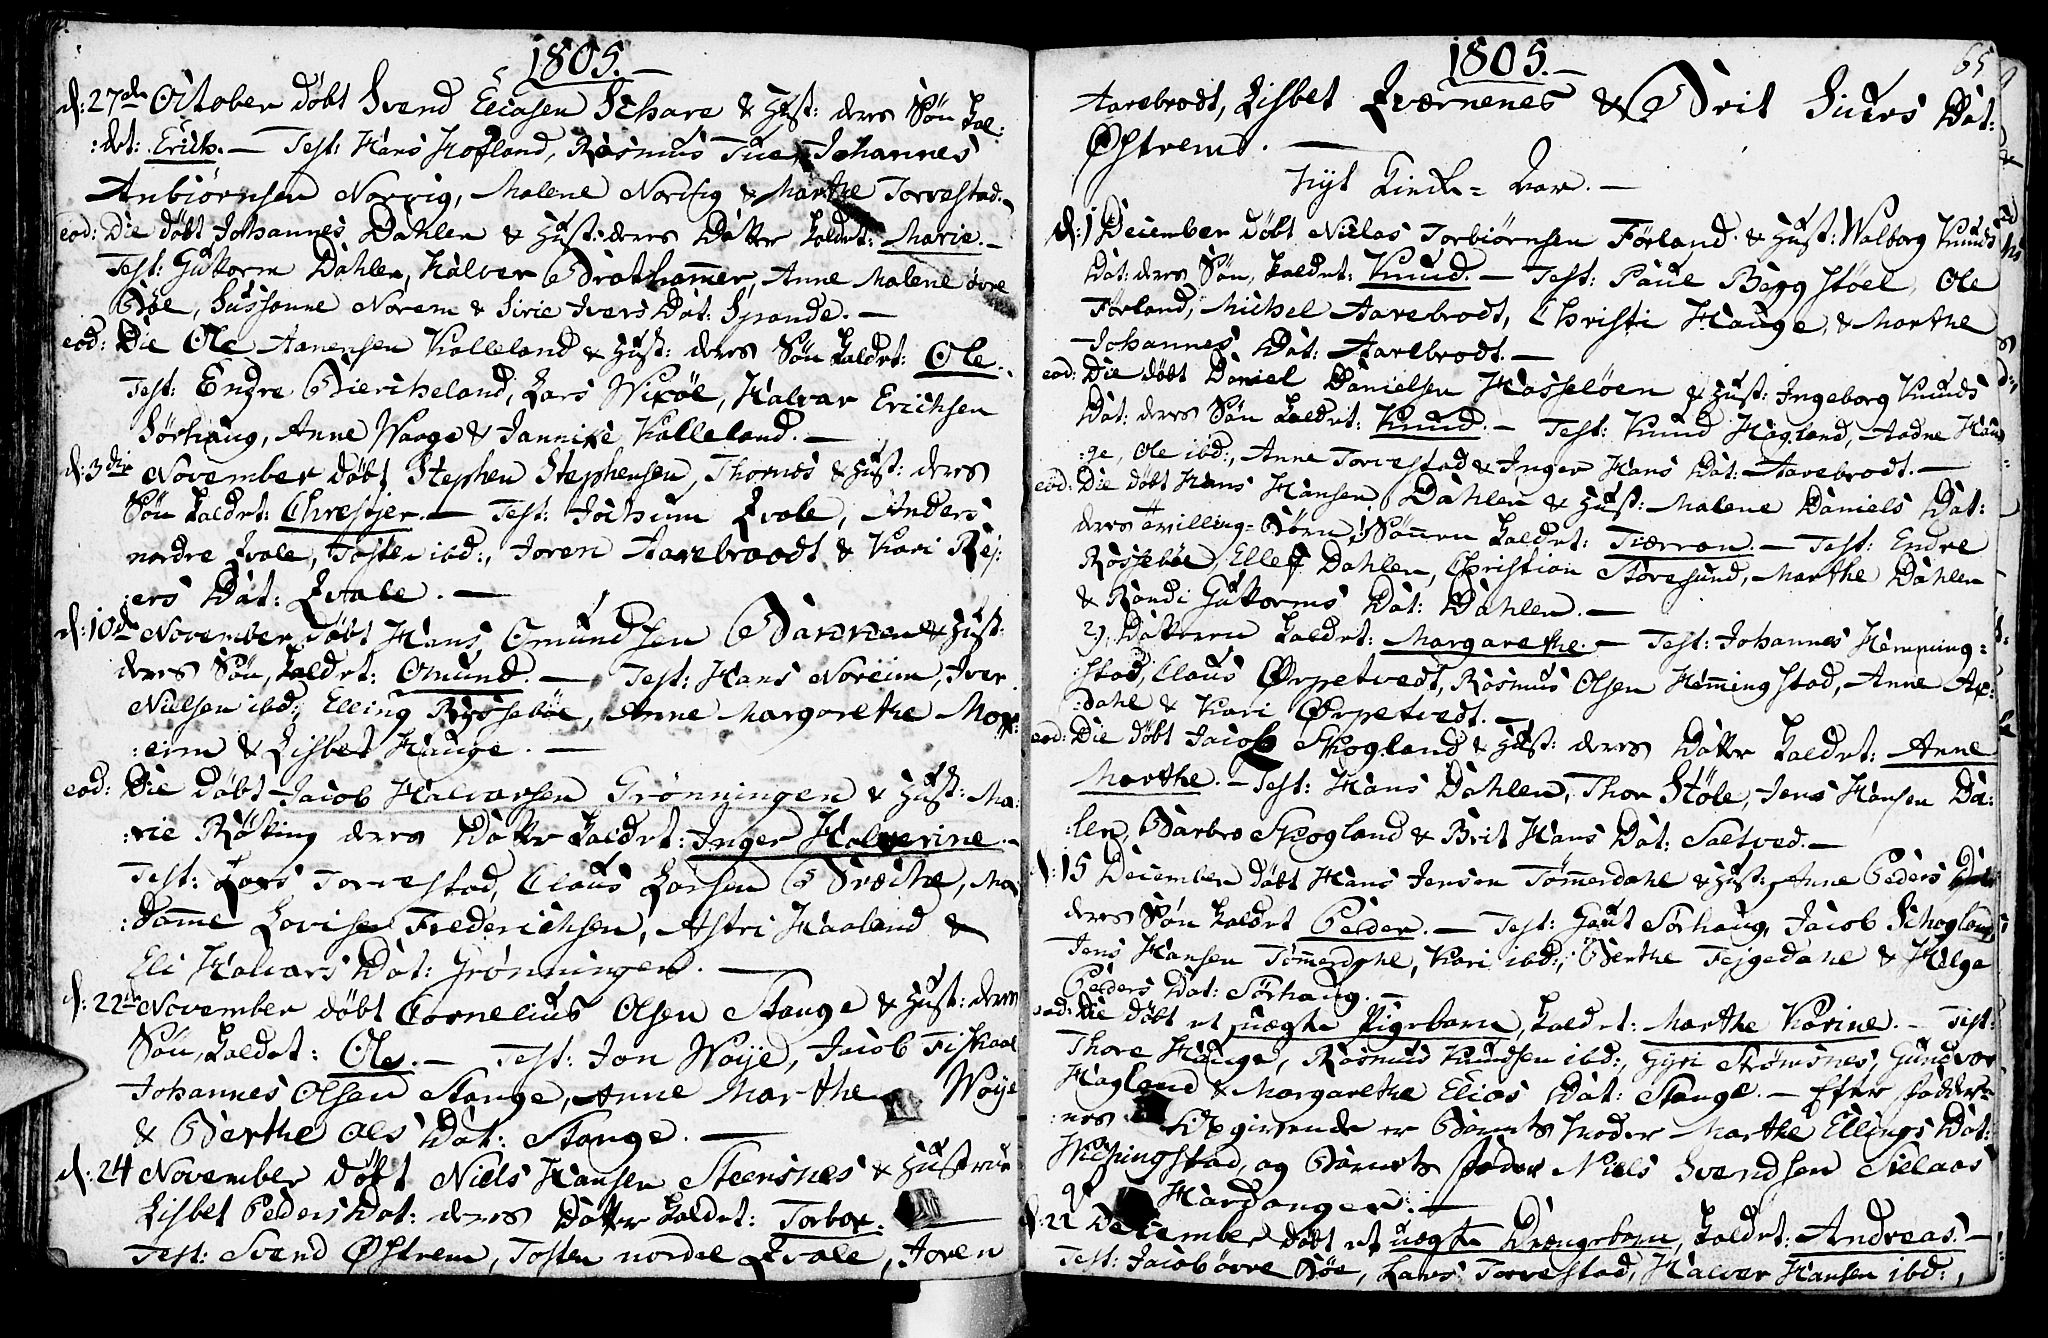 1805.
d: 27de October döbt Svend Eliasen Schare & Hust: deres Sön kal:
:det: Erich. — Test: Hans Hofland, Rasmus Tue, Johannes
Anbiörnsen Norvig, Malene Nordig & Marthe Torvestad.
eod: Die döbt Johannes Dahlen & Hust: deres Datter kaldet: Marie. —
Test: Guttorm Dahlen, Halver Bratthammer, Anne Malene övre
Böe, Sussanne Norem & Sirie Ivers Dat: Spande. —
eod: Die Ole Aanensen Kalleland & Hust: deres Sön kaldet: Ole.
Test: Endre Biercheland, Lars Wixöl, Halvar Erichsen
Sörhaug, Anne Waage & Jannike Kalleland. —
d: 3die November döbt Stephen Stephensen Thornæs & Hust: deres
Sön kaldet: Chrestjer. — Test: Jochum Qvale, Anders
nordre Qvale, Tosten ibd:, Joren Aarebraadt & Kari Rej:
:ers Dat: Qvale. —
d: 10de November döbt Hans Omundsen Bakken & Hust:
deres Sön, kaldet: Omund. — Test: Hans Noreim, Iver
Nielsen ibd:, Elling Røsseböe, Anne Margarethe Nor:
:eim & Lisbet Hauge. —
eod: Die döbt Jacob Halvorsen Grönningen & Hust: Ma:
:rie Röking deres Datter kaldet: Inger Halverine. —
Test: Lars Torvestad, Claus Larsen Bræche, Ma:
:damme Lovise Frederichsen, Astri Haaland &
Eli Halvars Dat: Grønningen. —
d: 22de November döbt Cornelius Olsen Stange & Hust: deres
Sön, kaldet: Ole. — Test: Jon Woije, Jacob Fiskaae
Johannes Olsen Stange, Anne Marthe Woije
& Berthe Ols Dat: Stange. —
d: 24 November döbt Niels Hansen Steensnes & Hustrue
Lisbet Peders Dat: deres Datter kaldet: Torbor. —
Test: Svend Østrem, Tosten nordre Qvale, Joren
1805. — 65
Aarebrodt, Lisbet Qværnenes & Brit Siurs Dat:
Østrem. —
Nyt Kirke-Aar. —
d: 1 December döbt Niclas Torbiörnsen Förland & Hust: Walborg Knuds
Dat: deres Sön, kaldet: Knud. — Test: Paul Bøggstöel, Ole
Förland, Michel Aarebrodt, Christi Hauge, & Marthe
Johannes Dat: Aarebrodt. —
eod: Die döbt Daniel Danielsen Hasselöen & Hust: Ingeborg Knuds
Dat: deres Sön kaldet: Knud. — Test: Knud Hagland, Aadne Hau
:ge, Ole ibd:, Anne Torvestad & Inger Hans Dat: Aarebrodt. —
eod: Die döbt Hans Hansen Dahlen & Hust: Malene Daniels Dat:
deres Tvilling-Börn, 1) Sönnen kaldet: Tiærran. — Test: Endre
Røssebøe, Ellef Dahlen, Christian Storesund, Marthe Dahlen
& Randi Guttorms Dat: Dahlen. —
2) Datteren kaldet: Margarethe. — Test: Johannes Hemming:
:stad, Claus Ørpetvedt, Rasmus Olsen Hemmingstad, Anne Ax:
:dahl & Kari Ørpetvedt. —
eod: Die döbt Jacob Skogland & Hust: deres Datter kaldet: Anne
Marthe. — Test: Hans Dahlen, Thor Støle, Jens Hansen Da:
:len, Barbro Skogland & Brit Hans Dat: Saltved. —
d: 15 December döbt Hans Jensen Tömmerdahl & Hust: Anne Peders Dat:
deres Sön kaldet Peder. — Test: Gaut Sörhaug, Jacob Schogland
Jens Hansen Tömmerdahl, Kari ibd:, Berthe Fejgedahl & Helga
Peders Dat: Sörhaug. —
eod: Die döbt et uægte Pigebarn, kaldet: Marthe Karine. — Test:
Thore Hauge, Rasmus Knudsen ibd:, Gyri Strömsnes, Gundvor
Hagland & Margarethe Elias Dat: Stange. — Efter Fadder
:nes Opgivende er Barnets Moder Marthe Ellings Dat:
Wichingstad, og Barnets Fader Niels Svendsen
af Hardanger. —
d: 22 December döbt et uægte Drengebarn, kaldet: Andreas. —
Test: Jacob övre Böe, Lars Torvestad, Halver Hansen ibd:,